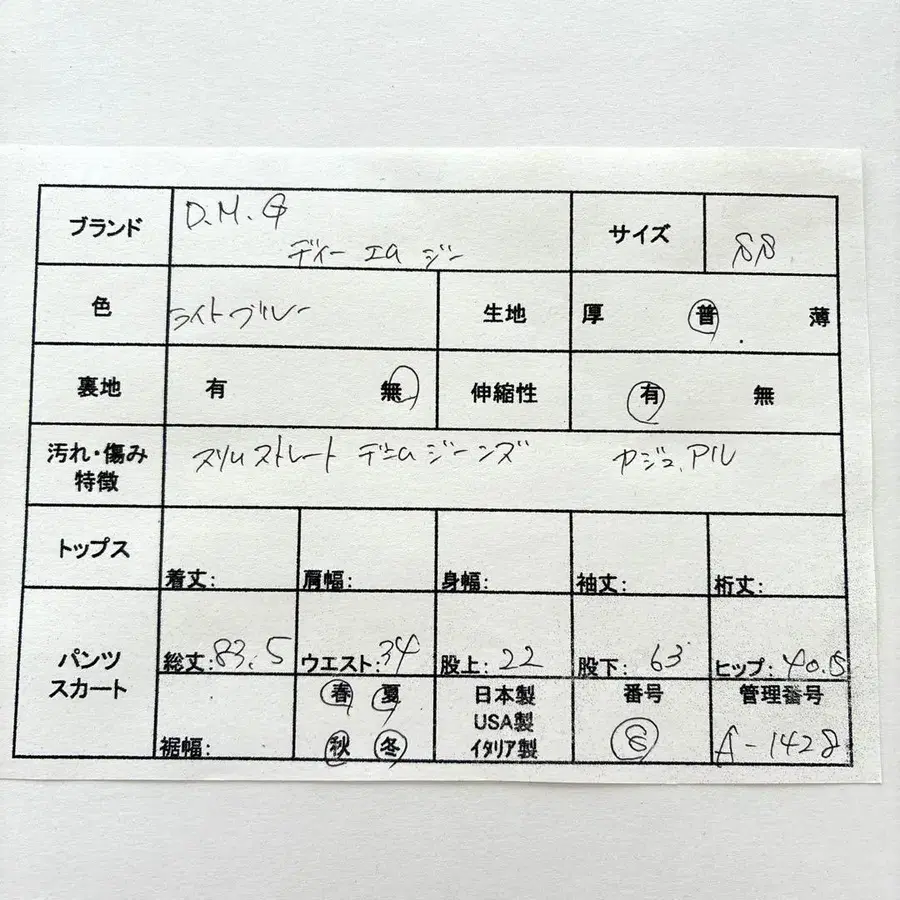 ブランド D.M.G サイズ
ディーエムジー
色 ライトブルー 生地 厚 普 薄
裏地 有 無 伸縮性 有 無
汚れ・傷み スリムストレート デニムジーンズ カジュアル
特徴
トップス 着丈: 肩幅: 身幅: 袖丈: 裄丈:
パンツ 総丈:83.5 ウエスト:34 股上:22 股下:63 ヒップ:40.5
スカート 春 夏 日本製 番号 管理番号
USA製
裾幅: 秋 冬 イタリア製 8 A-1428